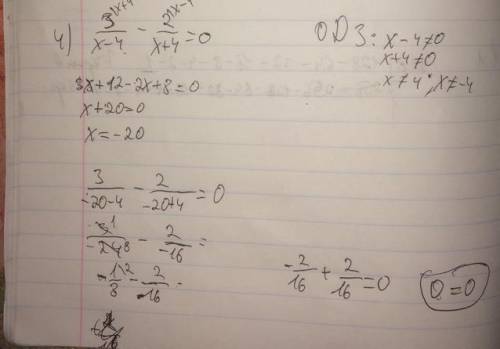 4) 3^(x+4/x-4 - 2^(x-4/x+4 = 0
ОДЗ: x-4≠0
x+4≠0
x≠4; x≠-4
3x+12-2x+8=0
x+20=0
x=-20
3/-20-4 - 2/-20+4 = 0
3^1/-24^8 - 2/-16 =
-1^2/8 - 2/-16
-2/16 + 2/16 = 0
0=0